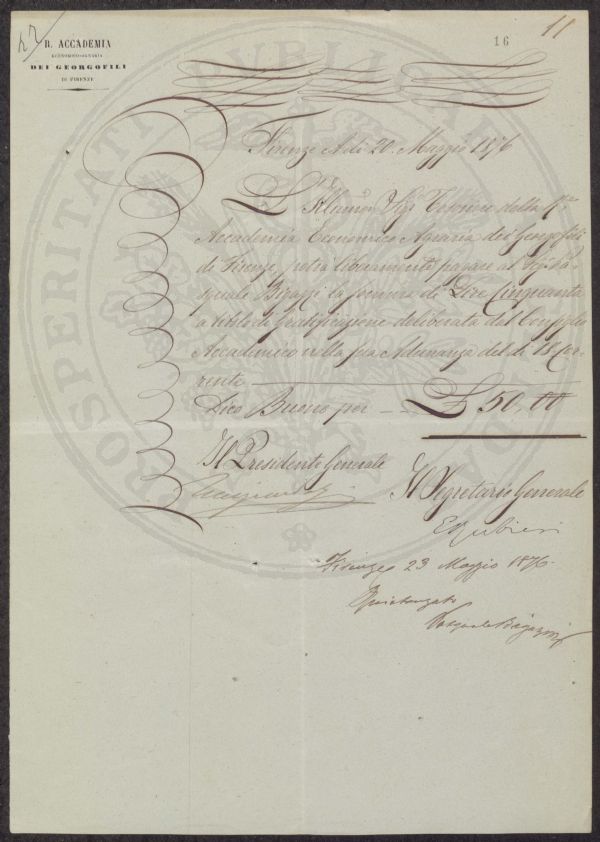 11
16
R. ACCADEMIA
ECONOMICO-AGRARIA
DEI GEORGOFILI
DI FIRENZE
PROSPERITATI PUBLICAE
Firenze A dì 20. Maggio 1876
L' Sig. Tesoriere della R.
Accademia Economico Agraria dei Georgofili
di Firenze, potrà liberamente pagare al Sig. Pa-
squale Bigazzi la somma di Lire Cinquanta
a titolo di gratificazione deliberata dal Consiglio
Accademico nella sua Adunanza del dì 18 Cor-
rente
Dico Buono per £ 50,00
Il Presidente Generale
Il Segretario Generale
Firenze 23 Maggio 1876.
Pasquale Bigazzi